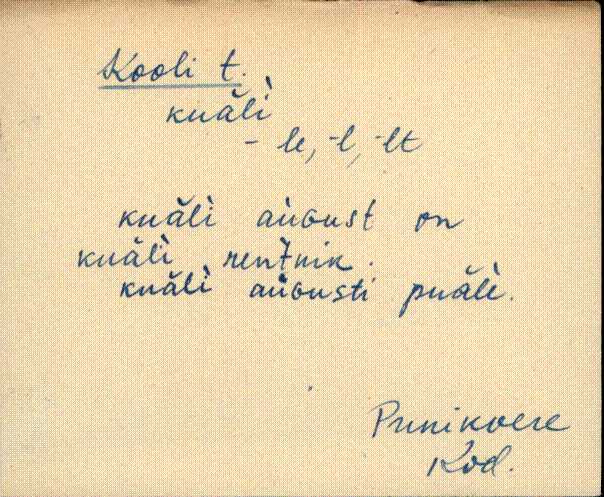 Kooli t.
kuăl̀i
- le, -l, -lt
kuăl̀i aùɢust on
kuăl̀i renťnik.
kuăl̀i aùɢusti puăle.
Punikvere
Kod.